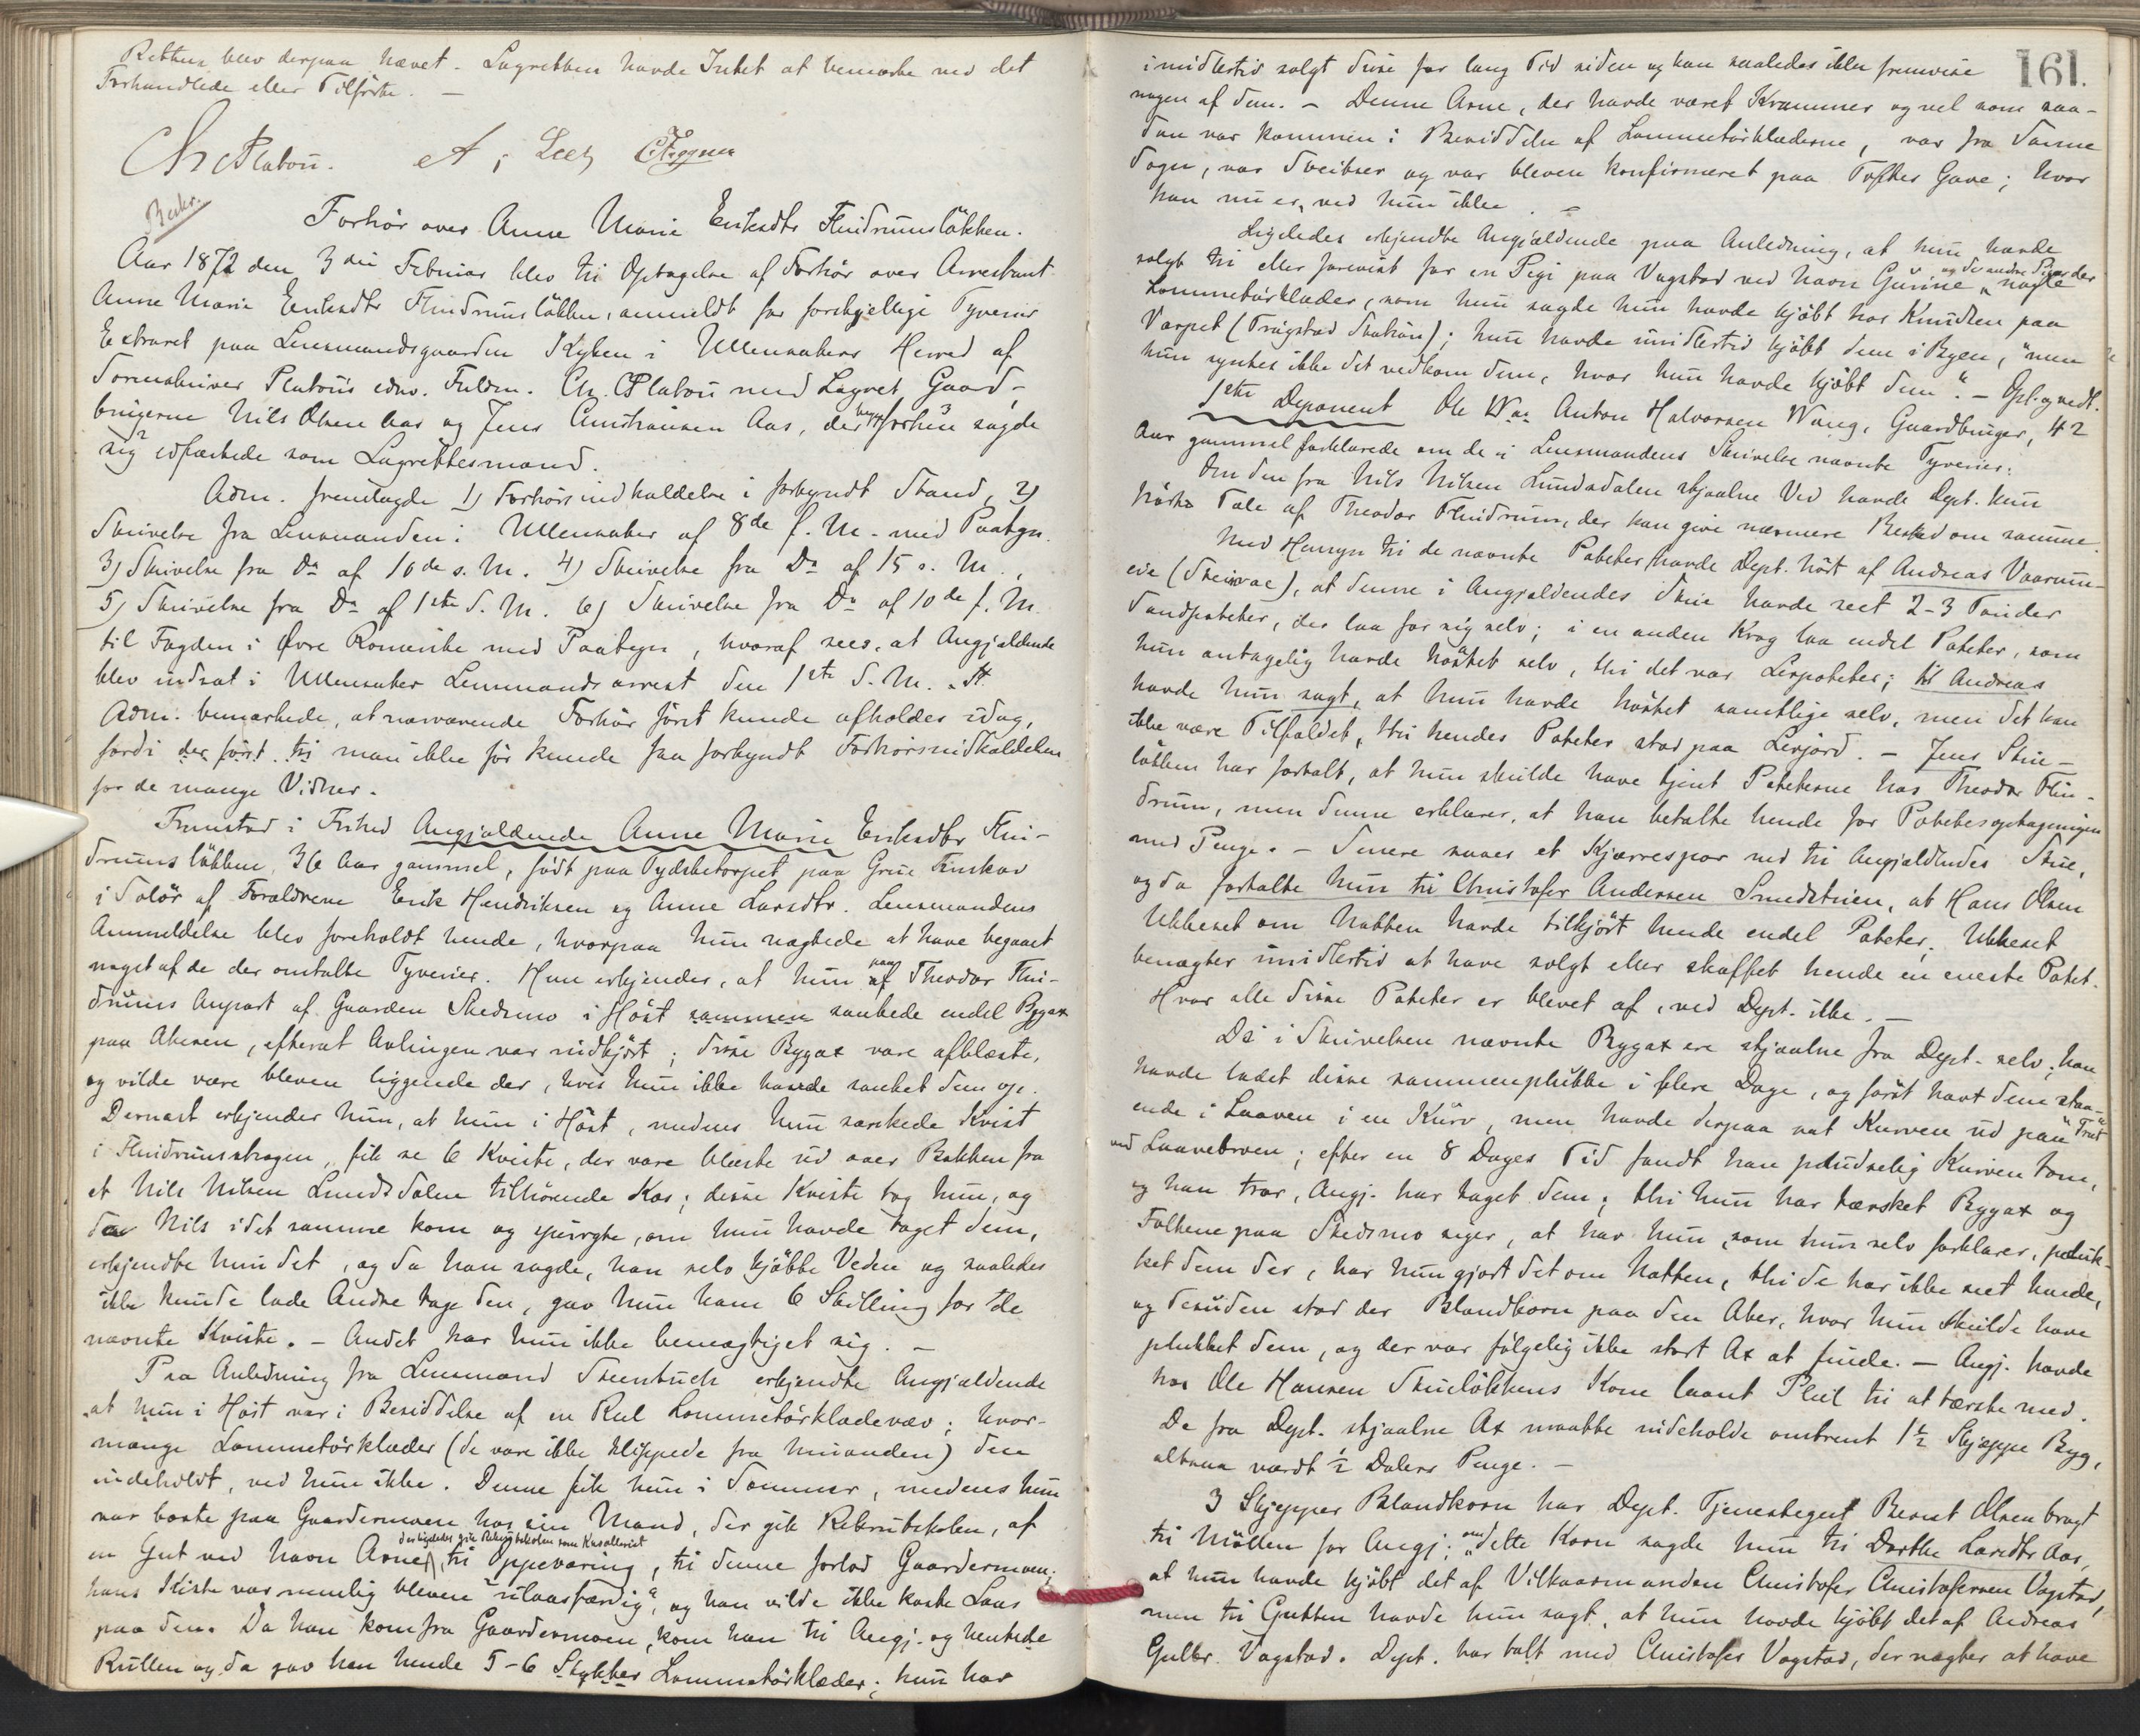 Retten blev derpaa hævet. – Lagretten havde Intet at bemærke ved det
Forhandlede eller Tilførte. –
Ch CPlatou. A. Lees
Beskr.
Forhör over Anne Marie Eriksdtr Fluidrumsløkken.
Aar 1872 den 3die Februar blev til Optagelse af Forhör over Arrestant
Anne Marie Eriksdtr Flindrumsløkken, anmeldt for forskjellige Tyverier
Extraret paa Lensmandsgaarden Kyken i Ullensakers Herred af
Sorenskriver Platou's edsv. Fuldm. Ch. CPlatou med Lagret Gaard-
brugerne Nils Olsen Aas og Jens Christiansen Aas, der begge forhen sagde
sig edfæstede som Lagrettesmænd.
Adm. fremlagde 1) Forhørsindkaldelse i forkyndt Stand, 2)
Skrivelse fra Lensmanden i Ullensaker af 8de f. M. med Paategn.
3) Skrivelse fra Do af 10de s. M. 4) Skrivelse fra Do af 15 s. M.,
5) Skrivelse fra Do af 1ste d. M. 6) Skrivelse fra Do af 10de f. M.
til Fogden i Øvre Romerike med Paategn, hvoraf sees, at Angjældende
blev indsat i Ullensaker Lensmandsarrest den 1ste d. M. –
Adm. bemærkede, at nærværende Forhör først kunde afholdes idag,
fordi der först til man ikke för kunde faa forkyndt Forhørsindkaldelsen
for de mange Vidner.
Fremstod i Frihed Angjældende Anne Marie Eriksdtr Flin-
drumsløkken, 36 Aar gammel, født paa Tydsketorpet paa Grue Finskov
i Solør af Forældrene Erik Hendriksen og Anne Larsdtr. Lensmandens
Anmeldelse blev foreholdt hende, hvorpaa hun nægtede at have begaaet
noget af de der omtalte Tyverier. Hun erkjender, at hun paa af Theodor Flin-
drums Anpart af Gaarden Skedsmo i Höst sammen sankede endel Bygax
paa Akeren, efterat Avlingen var indkjört; disse Bygax vare afblæste,
og vilde være bleven liggende der, hvis hun ikke havde sanket dem op.
Dernæst erkjender hun, at hun i Höst, medens hun sankede Kvist
i Flindrumshagen, fik se 6 Kviste, der vare blæste ud over Bakken fra
et Nils Nilsen Lundsdalen tilhörende Kas; disse Kviste tog hun, og
da Nils idetsamme kom og spurgte, om hun havde taget dem,
erkjendte hun det, og da han sagde, han selv kjöbte Veden og saaledes
ikke kunde lade Andre tage den, gav hun ham 6 Skilling for de
nævnte Kviste. – Andet har hun ikke bemægtiget sig. –
Paa Anledning fra Lensmand Steenbuch erkjendte Angjældende
at hun i Höst var i Besiddelse af en Rul Lommetörklædevæv; hvor-
mange Lommetörklæder (de vare ikke klippede fra hinanden) den
indeholdt, ved hun ikke. Denne fik hun i Sommer, medens hun
var borte paa Gardermoen hos sin Mand, der gik Rekrutskolen, af
der ligeledes gik Rekrutskolen som Kavallerist
en Gut ved Navn Arne, til Oppevaring, til denne forlod Gaardermoen;
hans Kiste var nemlig bleven "ulaasfærdig", og han vilde ikke koste Laas
paa den. Da han kom fra Gaardermoen, kom han til Angj. og hentede
Rullen og da gav han hende 5-6 Stykker Lommetörklæder; hun har
161.
imidlertid solgt disse for lang Tid siden og kan saaledes ikke fremvise
nogen af dem. – Denne Arne, der havde været Krammer og vel som saa-
dan var kommen i Besiddelse af Lommetörklæderne, var fra samme
Sogn, var Sveitser og var bleven konfirmeret paa Toftes Gave; hvor
han nu er, ved hun ikke. –
Ligeledes erkjendte Angjældende paa Anledning, at hun havde
solgt til eller forevist for en Pige paa Vagstad ved Navn Gurine og de andre Piger der nogle
Lommetörklæder, som hun sagde hun havde kjöbt hos Knudsen paa
Varpet (Trøgstad Station); hun havde imidlertid kjöbt dem i Byen, "men
hun syntes ikke det vedkom dem, hvor hun havde kjöbt dem". – Opl. og vedt.
1ste Deponent Ole Anton Halvorsen Wang, Gaardbruger, 42
Aar gammel forklarede om de i Lensmandens Skrivelse nævnte Tyverier:
Om den fra Nils Nilsen Lundsdalen stjaalne Ved havde Dept. kun
hört Tale af Theodor Flindrum, der kan give nærmere Besked om samme.
Med Hensyn til de nævnte Poteter havde Dept. hört af Andreas Vaarum-
eie, at denne i Angjældendes Stue havde seet 2-3 Tönder
Sandpoteter, der laa for sig selv; i en anden Krog laa endel Poteter, som
hun antagelig havde höstet selv, thi det var Lerpoteter; til Andreas
havde hun sagt, at hun havde höstet samtlige selv, men det kan
ikke være Tilfældet, thi hendes Poteter stod paa Lerjord. – Jens Stue-
løkken har fortalt, at hun skulde have tjent Poteterne hos Theodor Flin-
drum, men denne erklærer, at han betalte hende for Potetesoptagningen
med Penge. – Senere saaes et Kjærrespor ned til Angjældendes Stue,
og da fortalte hun til Christofer Andersen Smedstuen, at Hans Olsen
Ukkeset om Natten havde tilkjört hende endel Poteter. Ukkeset
benægter imidlertid at have solgt eller skaffet hende en eneste Potet.
Hvor alle disse Poteter er blevet af, ved Dept. ikke. –
De i Skrivelsen nævnte Bygax ere stjaalne fra Dept. selv; han
havde ladet disse sammenplukke i flere Dage, og först havt dem staa-
ende i Laaven i en Kurv, men havde derpaa sat Kurven ud paa
ved Laavebroen; efter en 8 Dages Tid fandt han pludselig Kurven tom,
og han tror, Angj. har taget dem; thi hun har tærsket Bygax og
Folkene paa Skedsmo siger, at har hun, som hun selv forklarer, pluk-
ket dem der, har hun gjort det om Natten, thi de har ikke seet hende,
og desuden stod der Blandkorn paa den Aker, hvor hun skulde have
plukket dem, og der var fölgelig ikke stort Ax at finde. – Angj. havde
hos Ole Hansen Stueløkkens Kone laant Pleil til at tærske med.
De fra Dept. stjaalne Ax maatte indeholde omtrent 1½ Skjæppe Byg,
altsaa værdt ½ Dalers Penge. –
3 Skjepper Blandkorn har Dept. Tjenestegut Bernt Olsen bragt
til Möllen for Angj.; om dette Korn sagde hun til Dorthe Larsdtr Aas,
at hun havde kjöbt det af Vilkaarsmanden Christofer Christofersen Vagstad,
men til Gutten havde hun sagt, at hun havde kjöbt det af Andreas
Gulbr. Vagstad. Dept. har talt med Christofer Vagstad, der nægter at have